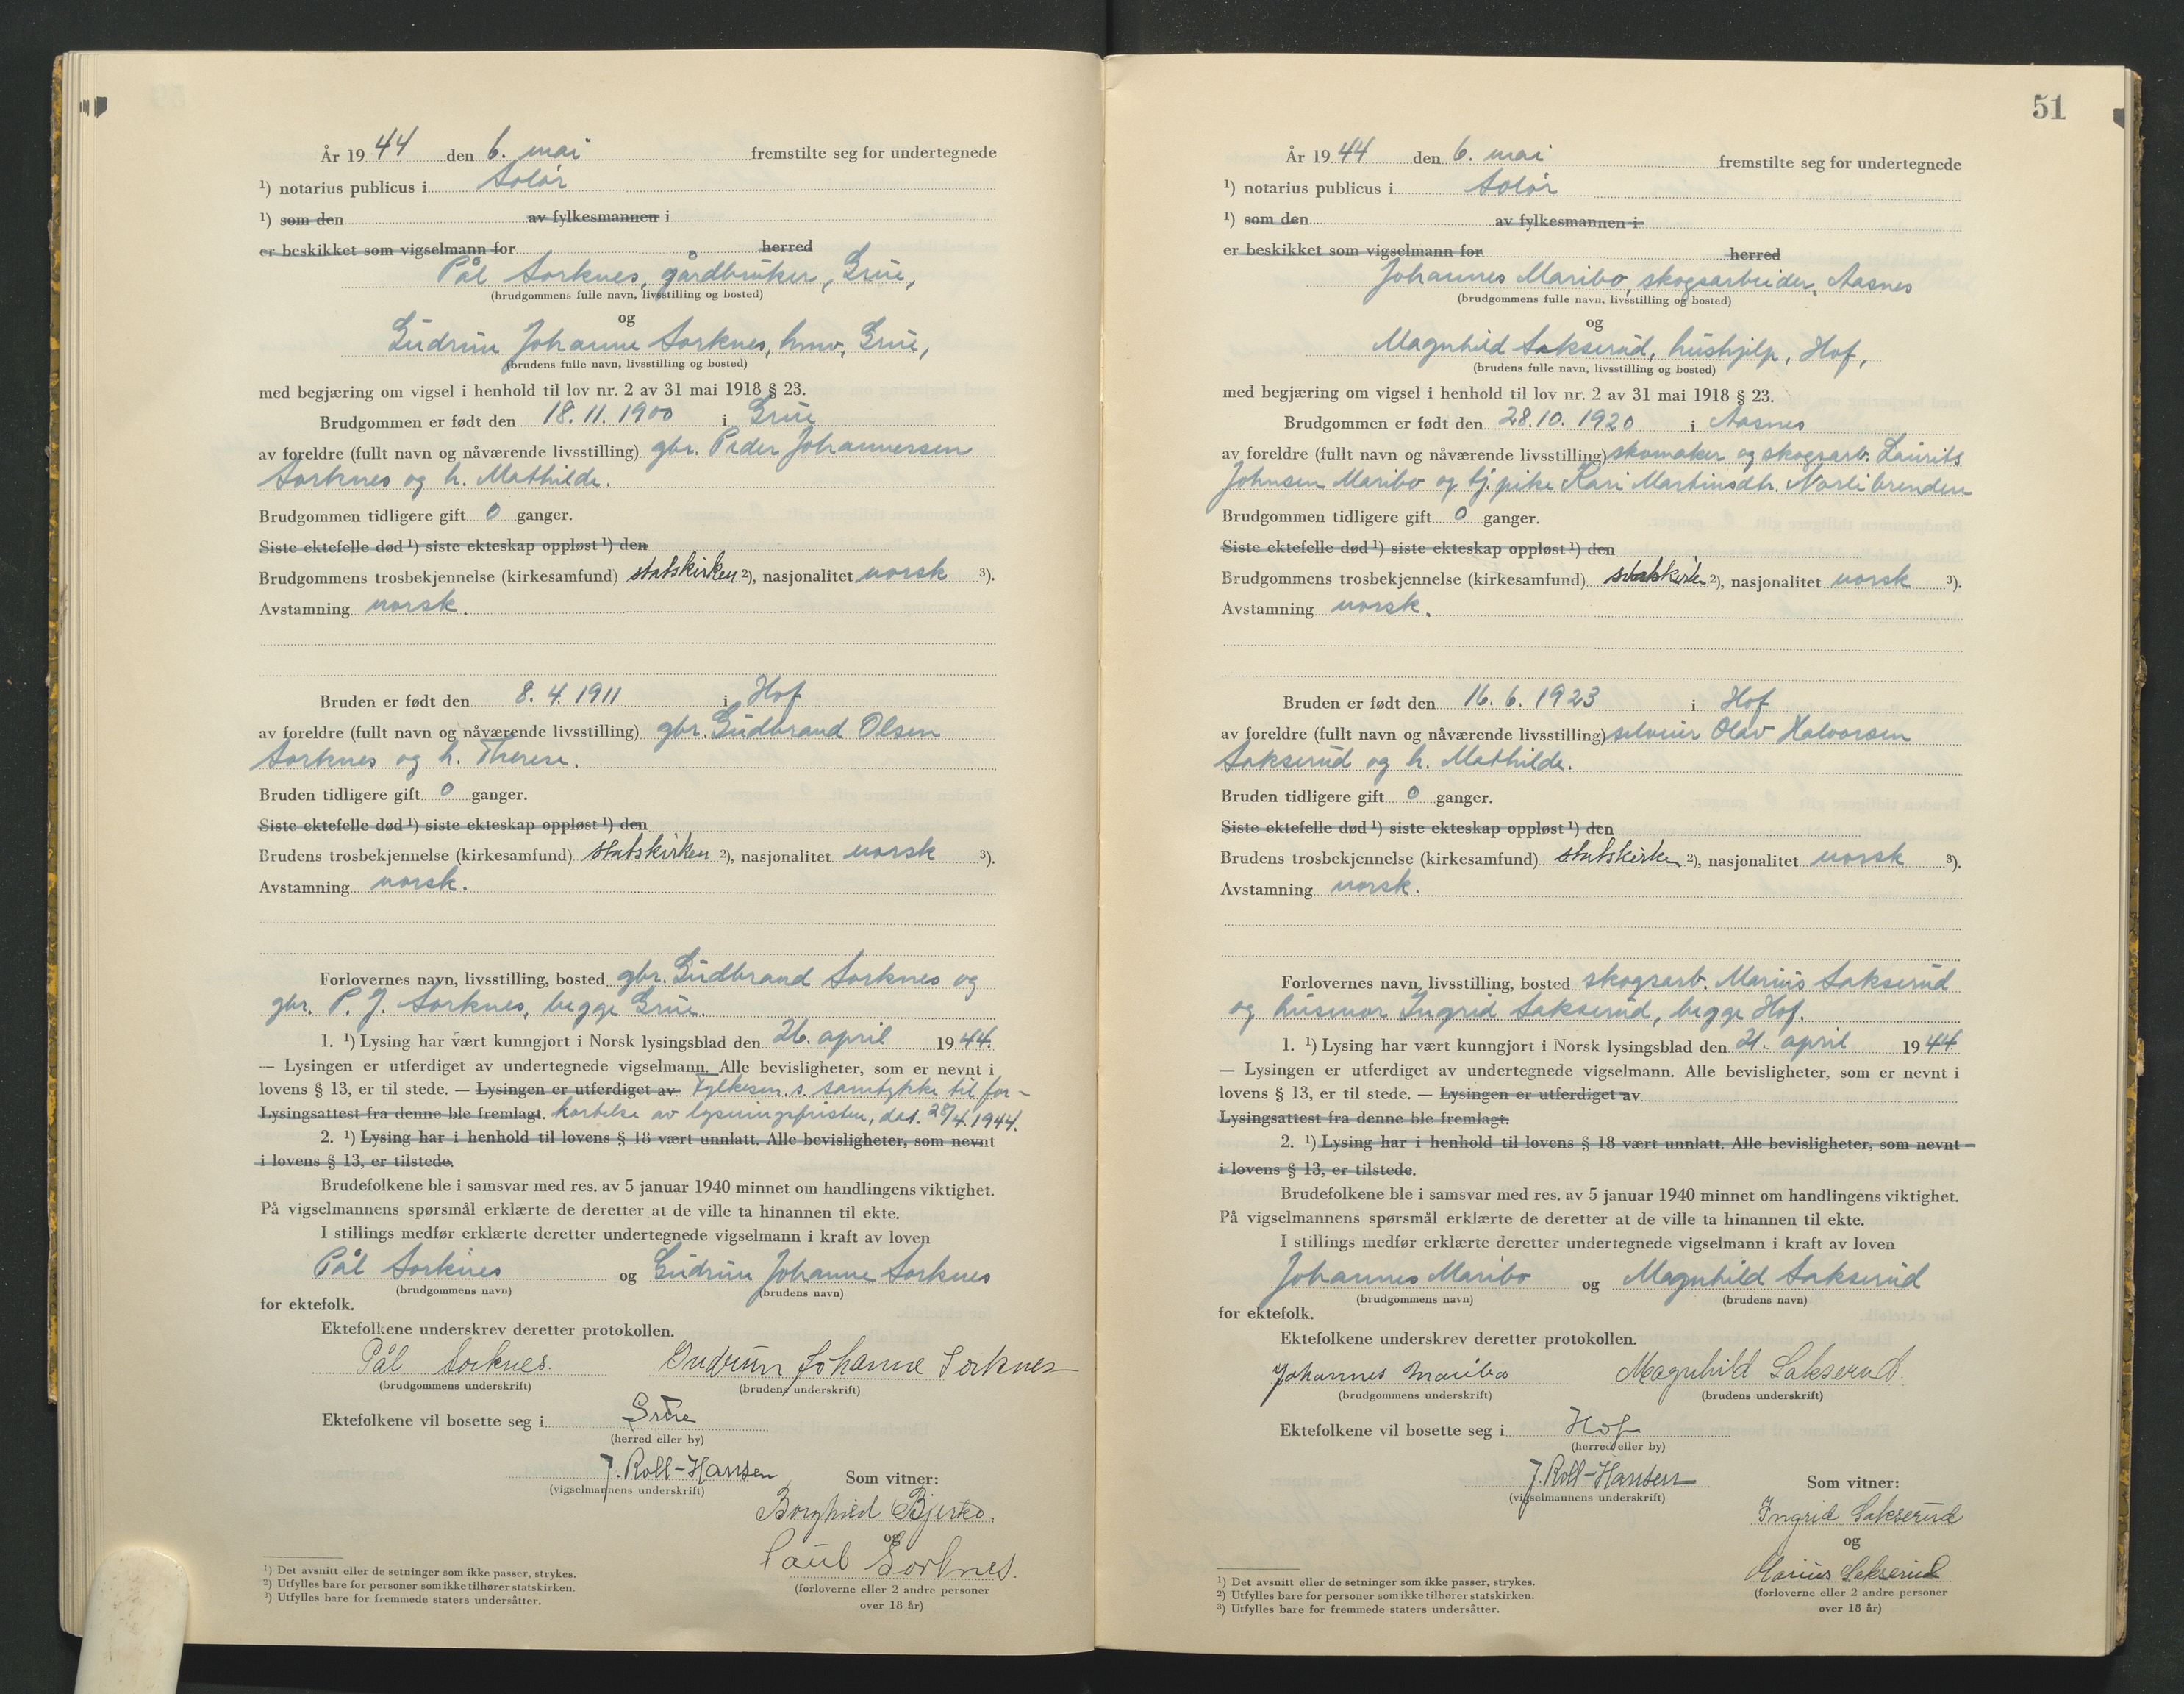 År 1944 den 6. mai fremstilte seg for undertegnede
¹) notarius publicus i Solør
¹) som den av fylkesmannen i
er beskikket som vigselmann for herred
Pål Sorknes, gårdbruker, Grue,
(brudgommens fulle navn, livsstilling og bosted)
og
Gudrun Johanne Sorknes, hmv, Grue,
(brudens fulle navn, livsstilling og bosted)
med begjæring om vigsel i henhold til lov nr. 2 av 31 mai 1918 § 23.
Brudgommen er født den 18.11.1900 i Grue
av foreldre (fullt navn og nåværende livsstilling) gbr. Peder Johannessen
Sorknes og h. Mathilde.
Brudgommen tidligere gift 0 ganger.
Siste ektefelle død ¹) siste ekteskap oppløst ¹) den
Brudgommens trosbekjennelse (kirkesamfund) statskirken ²), nasjonalitet norsk ³).
Avstamning norsk.
Bruden er født den 8.4.1911 i Hof
av foreldre (fullt navn og nåværende livsstilling) gbr. Gudbrand Olsen
Sorknes og h. Therese.
Bruden tidligere gift 0 ganger.
Siste ektefelle død ¹) siste ekteskap oppløst ¹) den
Brudens trosbekjennelse (kirkesamfund) statskirken ²), nasjonalitet norsk ³).
Avstamning norsk.
Forlovernes navn, livsstilling, bosted gbr. Gudbrand Sorknes og
gbr. P. J. Sorknes, begge Grue.
1. ¹) Lysing har vært kunngjort i Norsk lysingsblad den 26. april 1944.
— Lysingen er utferdiget av undertegnede vigselmann. Alle bevisligheter, som er nevnt i
lovens § 13, er til stede. — Lysingen er utferdiget av Fylkesm.s samtykke til for-
Lysingsattest fra denne ble fremlagt. kortelse av lysningsfristen, dat. 28/4.1944.
2. ¹) Lysing har i henhold til lovens § 18 vært unnlatt. Alle bevisligheter, som nevnt
i lovens § 13, er tilstede.
Brudefolkene ble i samsvar med res. av 5 januar 1940 minnet om handlingens viktighet.
På vigselmannens spørsmål erklærte de deretter at de ville ta hinannen til ekte.
I stillings medfør erklærte deretter undertegnede vigselmann i kraft av loven
Pål Sorknes og Gudrun Johanne Sorknes
(brudgommens navn) (brudens navn)
for ektefolk.
Ektefolkene underskrev deretter protokollen.
Pål Sorknes. Gudrun Johanne Sorknes
(brudgommens underskrift) (brudens underskrift)
Ektefolkene vil bosette seg i Grue
(herred eller by)
J. Roll-Hansen
(vigselmannens underskrift)
Som vitner:
Borghild Bjerke.
og
Paul Sorknes.
(forloverne eller 2 andre personer
over 18 år)
¹) Det avsnitt eller de setninger som ikke passer, strykes.
²) Utfylles bare for personer som ikke tilhører statskirken.
³) Utfylles bare for fremmede staters undersåtter.
51
År 1944 den 6. mai fremstilte seg for undertegnede
¹) notarius publicus i Solør
¹) som den av fylkesmannen i
er beskikket som vigselmann for herred
Johannes Maribo, skogsarbeider, Aasnes
(brudgommens fulle navn, livsstilling og bosted)
og
Magnhild Sakserud, hushjelp, Hof,
(brudens fulle navn, livsstilling og bosted)
med begjæring om vigsel i henhold til lov nr. 2 av 31 mai 1918 § 23.
Brudgommen er født den 28.10.1920 i Aasnes
av foreldre (fullt navn og nåværende livsstilling) skomaker og skogsarb. Laurits
Johnsen Maribo og tj.pike Kari Martinsdtr. Norli brenden
Brudgommen tidligere gift 0 ganger.
Siste ektefelle død ¹) siste ekteskap oppløst ¹) den
Brudgommens trosbekjennelse (kirkesamfund) statskirken ²), nasjonalitet norsk ³).
Avstamning norsk.
Bruden er født den 16.6.1923 i Hof
av foreldre (fullt navn og nåværende livsstilling) selveier Olav Halvorsen
Sakserud og h. Mathilde.
Bruden tidligere gift 0 ganger.
Siste ektefelle død ¹) siste ekteskap oppløst ¹) den
Brudens trosbekjennelse (kirkesamfund) statskirken ²), nasjonalitet norsk ³).
Avstamning norsk.
Forlovernes navn, livsstilling, bosted skogsarb. Marius Sakserud
og husmor Ingrid Sakserud, begge Hof.
1. ¹) Lysing har vært kunngjort i Norsk lysingsblad den 21. april 1944
— Lysingen er utferdiget av undertegnede vigselmann. Alle bevisligheter, som er nevnt i
lovens § 13, er til stede. — Lysingen er utferdiget av
Lysingsattest fra denne ble fremlagt.
2. ¹) Lysing har i henhold til lovens § 18 vært unnlatt. Alle bevisligheter, som nevnt
i lovens § 13, er tilstede.
Brudefolkene ble i samsvar med res. av 5 januar 1940 minnet om handlingens viktighet.
På vigselmannens spørsmål erklærte de deretter at de ville ta hinannen til ekte.
I stillings medfør erklærte deretter undertegnede vigselmann i kraft av loven
Johannes Maribo og Magnhild Sakserud
(brudgommens navn) (brudens navn)
for ektefolk.
Ektefolkene underskrev deretter protokollen.
Johannes Maribo Magnhild Sakserud.
(brudgommens underskrift) (brudens underskrift)
Ektefolkene vil bosette seg i Hof
(herred eller by)
J. Roll-Hansen
(vigselmannens underskrift)
Som vitner:
Ingrid Sakserud
og
Marius Sakserud
(forloverne eller 2 andre personer
over 18 år)
¹) Det avsnitt eller de setninger som ikke passer, strykes.
²) Utfylles bare for personer som ikke tilhører statskirken.
³) Utfylles bare for fremmede staters undersåtter.